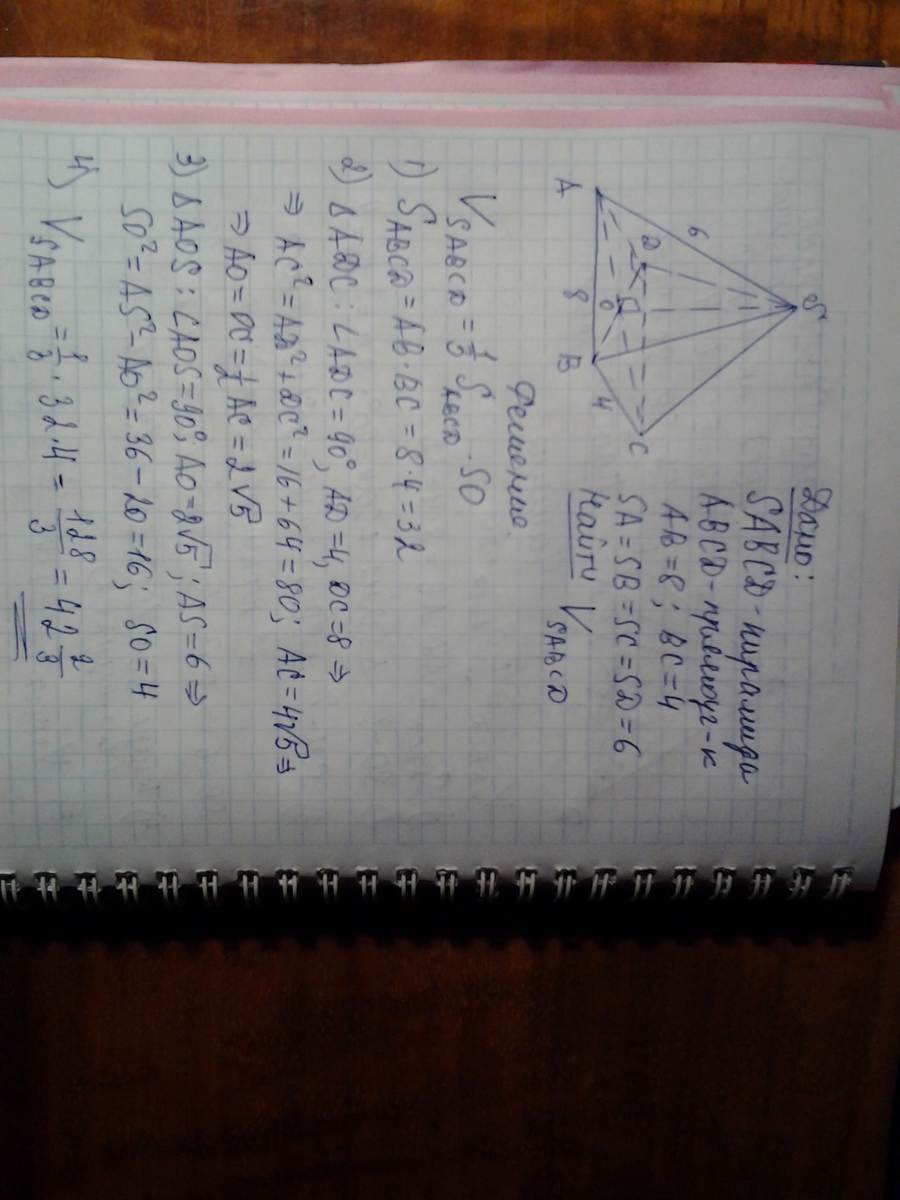 Дано:
SABCD-пирамида
ABCD-прямоуг-к
AB=8; BC=4
SA=SB=SC=SD=6
Найти V_SABCD
S
6
D
A
8
O
B
4
C
Решение.
V_SABCD = 1/3 S_ABCD · SO
1) S_ABCD = AB·BC = 8·4=32
2) ΔADC: ∠ADC=90°, AD=4, DC=8 ⇒
⇒ AC²=AD²+DC²=16+64=80; AC=4√5 ⇒
⇒ AO=OC=1/2 AC=2√5
3) ΔAOS: ∠AOS=90°; AO=2√5; AS=6 ⇒
SO²=AS²-AO²=36-20=16; SO=4
4) V_SABCD = 1/3 · 32·4 = 128/3 = 42 2/3